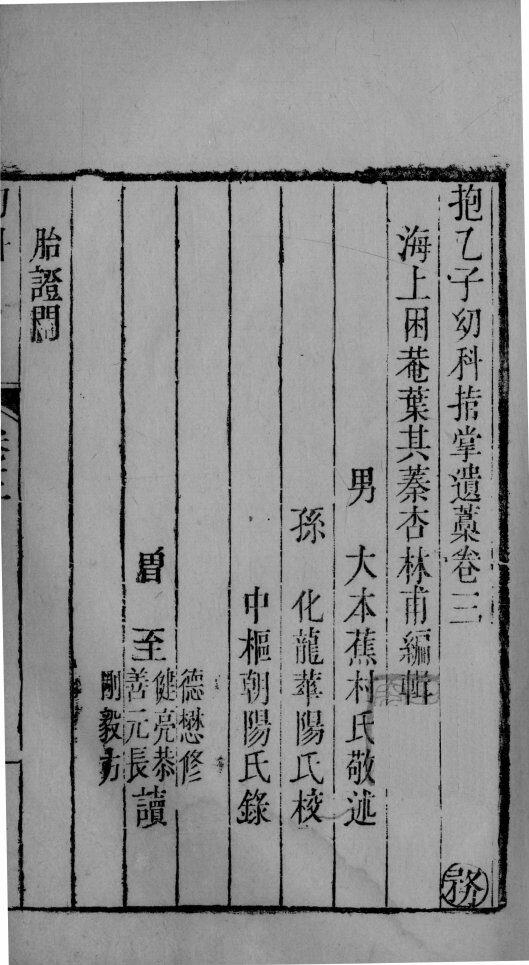 抱乙子幼科指掌遺藁卷三
海上困菴葉其蓁杏林甫編輯
男 大本蕉村氏敬述
孫 化龍華陽氏校
中樞朝陽氏錄
德懋修
至健亮恭
善元長讀
剛毅方
胎證門